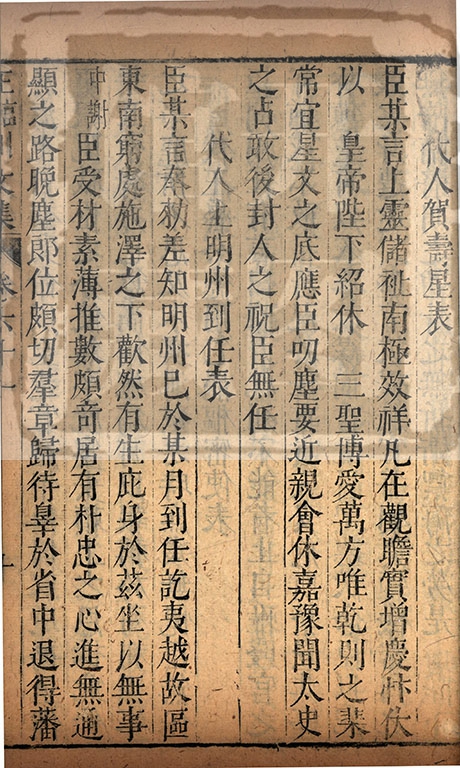 代人賀壽星表
臣某言上靈儲祉南極效祥凡在觀瞻實增慶忭伏
以　皇帝陛下紹休　三聖博愛萬方唯乾則之棐
常宜星文之底應臣叨塵要近親會休嘉豫聞太史
之占敢後封人之祝臣無任
代人上明州到任表
臣某言奉勑差知明州巳於某月到任訖夷越故區
東南窮處施澤之下歡然有生庇身於茲坐以無事
中謝臣受材素薄推數頗竒居有朴忠之心進無通
顯之路晚塵郎位頗切羣章歸待辠於省中退得藩
王臨川文集　卷六十一